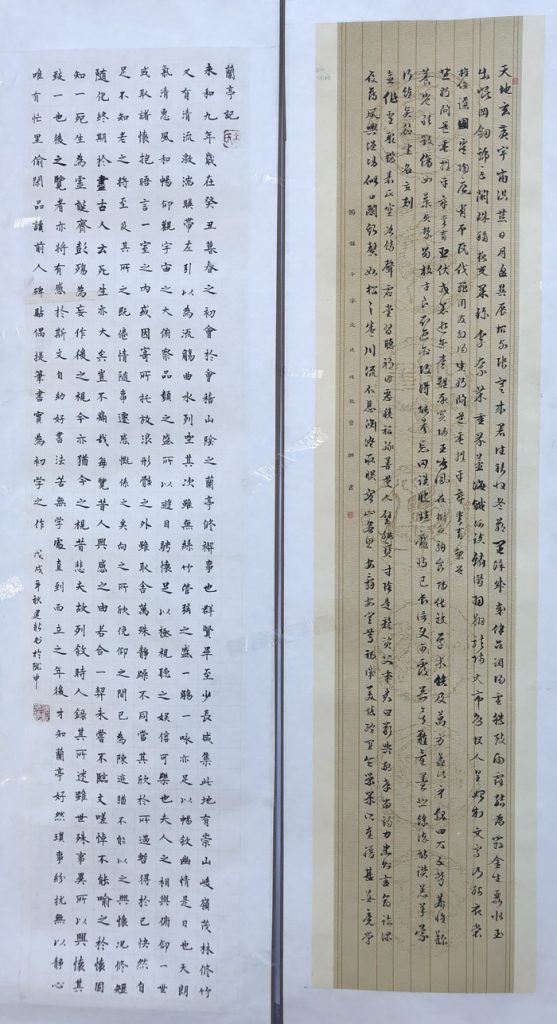 天地玄黃宇宙洪荒日月盈昃辰宿列張寒來暑往秋收冬藏閏餘成歲律呂調陽雲騰致雨露結為霜金生麗水玉
出崑岡劍號巨闕珠稱夜光果珍李柰菜重芥薑海鹹河淡鱗潛羽翔龍師火帝鳥官人皇始制文字乃服衣裳
推位讓國有虞陶唐弔民伐罪周發殷湯坐朝問道垂拱平章愛育黎首
坐朝問道垂拱平章愛育黎首臣伏戎羌遐邇壹體率賓歸王鳴鳳在樹白駒食場化被草木賴及萬方蓋此身髮四大五常恭惟鞠
養豈敢毀傷女慕貞絜男效才良知過必改得能莫忘罔談彼短靡恃己長信使可覆器欲難量墨悲絲染詩讚羔羊景
名立
形端表正空谷傳聲虛堂習聽禍因惡積福緣善慶尺璧非寶寸陰是競資父事君曰嚴與敬孝當竭力忠則盡命臨深
履薄夙興溫凊似蘭斯馨如松之盛川流不息淵澄取映容止若思言辭安定篤初誠美慎終宜令榮業所基籍甚無竟學
千字文
蘭亭記
永和九年歲在癸丑暮春之初會於會稽山陰之蘭亭修禊事也群賢畢至少長咸集此地有崇山峻嶺茂林修竹
又有清流激湍映帶左引以為流觴曲水列坐其次雖無絲竹管弦之盛一觴一詠亦足以暢敘幽情是日也天朗
氣清惠風和暢仰觀宇宙之大俯察品類之盛所以遊目騁懷足以極視聽之娛信可樂也夫人之相與俯仰一世
或取諸懷抱晤言一室之內或因寄所托放浪形骸之外雖取舍萬殊靜躁不同當其欣於所遇暫得於己快然自
足不知老之將至及其所之既倦情隨事遷感慨係之矣向之所欣俛仰之間已為陳迹猶不能以之興懷況修短
隨化終期於盡古人云死生亦大矣豈不痛哉每覽昔人興感之由若合一契未嘗不臨文嗟悼不能喻之於懷固
知一死生為虛誕齊彭殤為妄作後之視今亦猶今之視昔悲夫故列敘時人錄其所述雖世殊事異所以興懷其
致一也後之覽者亦將有感於斯文自幼好書法苦無學處直到而立之年後才知蘭亭好然瑣事紛擾無以靜心
唯有忙里偷閑品讀前人碑點偶提筆書實為初學之作 戊戌年秋建新書於阮中